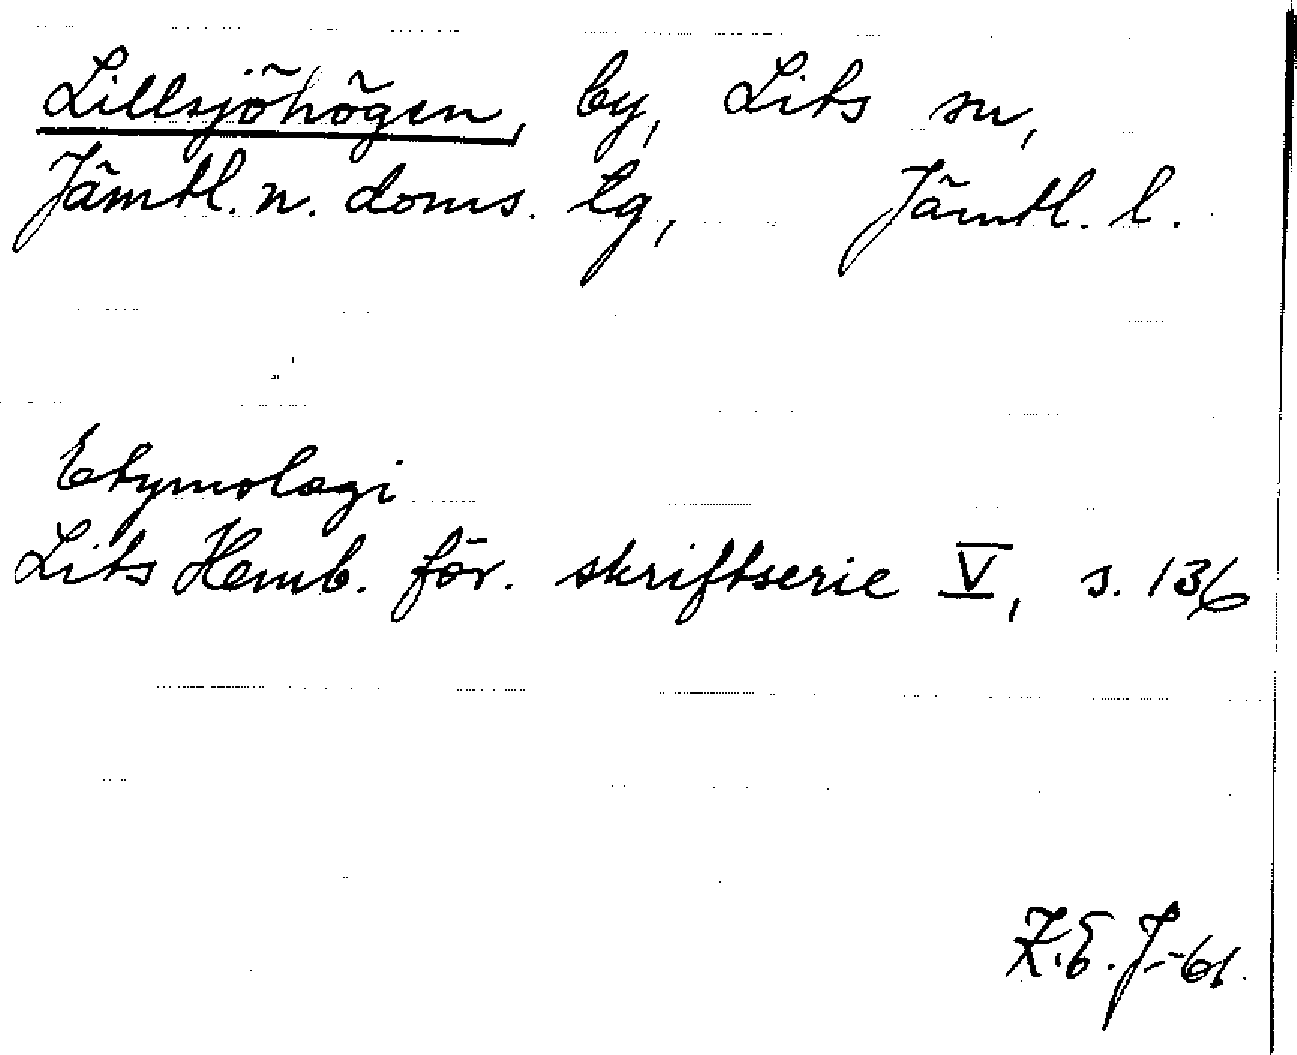 Lillsjöhögen, by, Lits sn,
Jämtl. n. doms. tg, Jämtl. l.
Etymologi
Lits Hemb. för. skriftserie V, s. 136
K.E.J.-61.